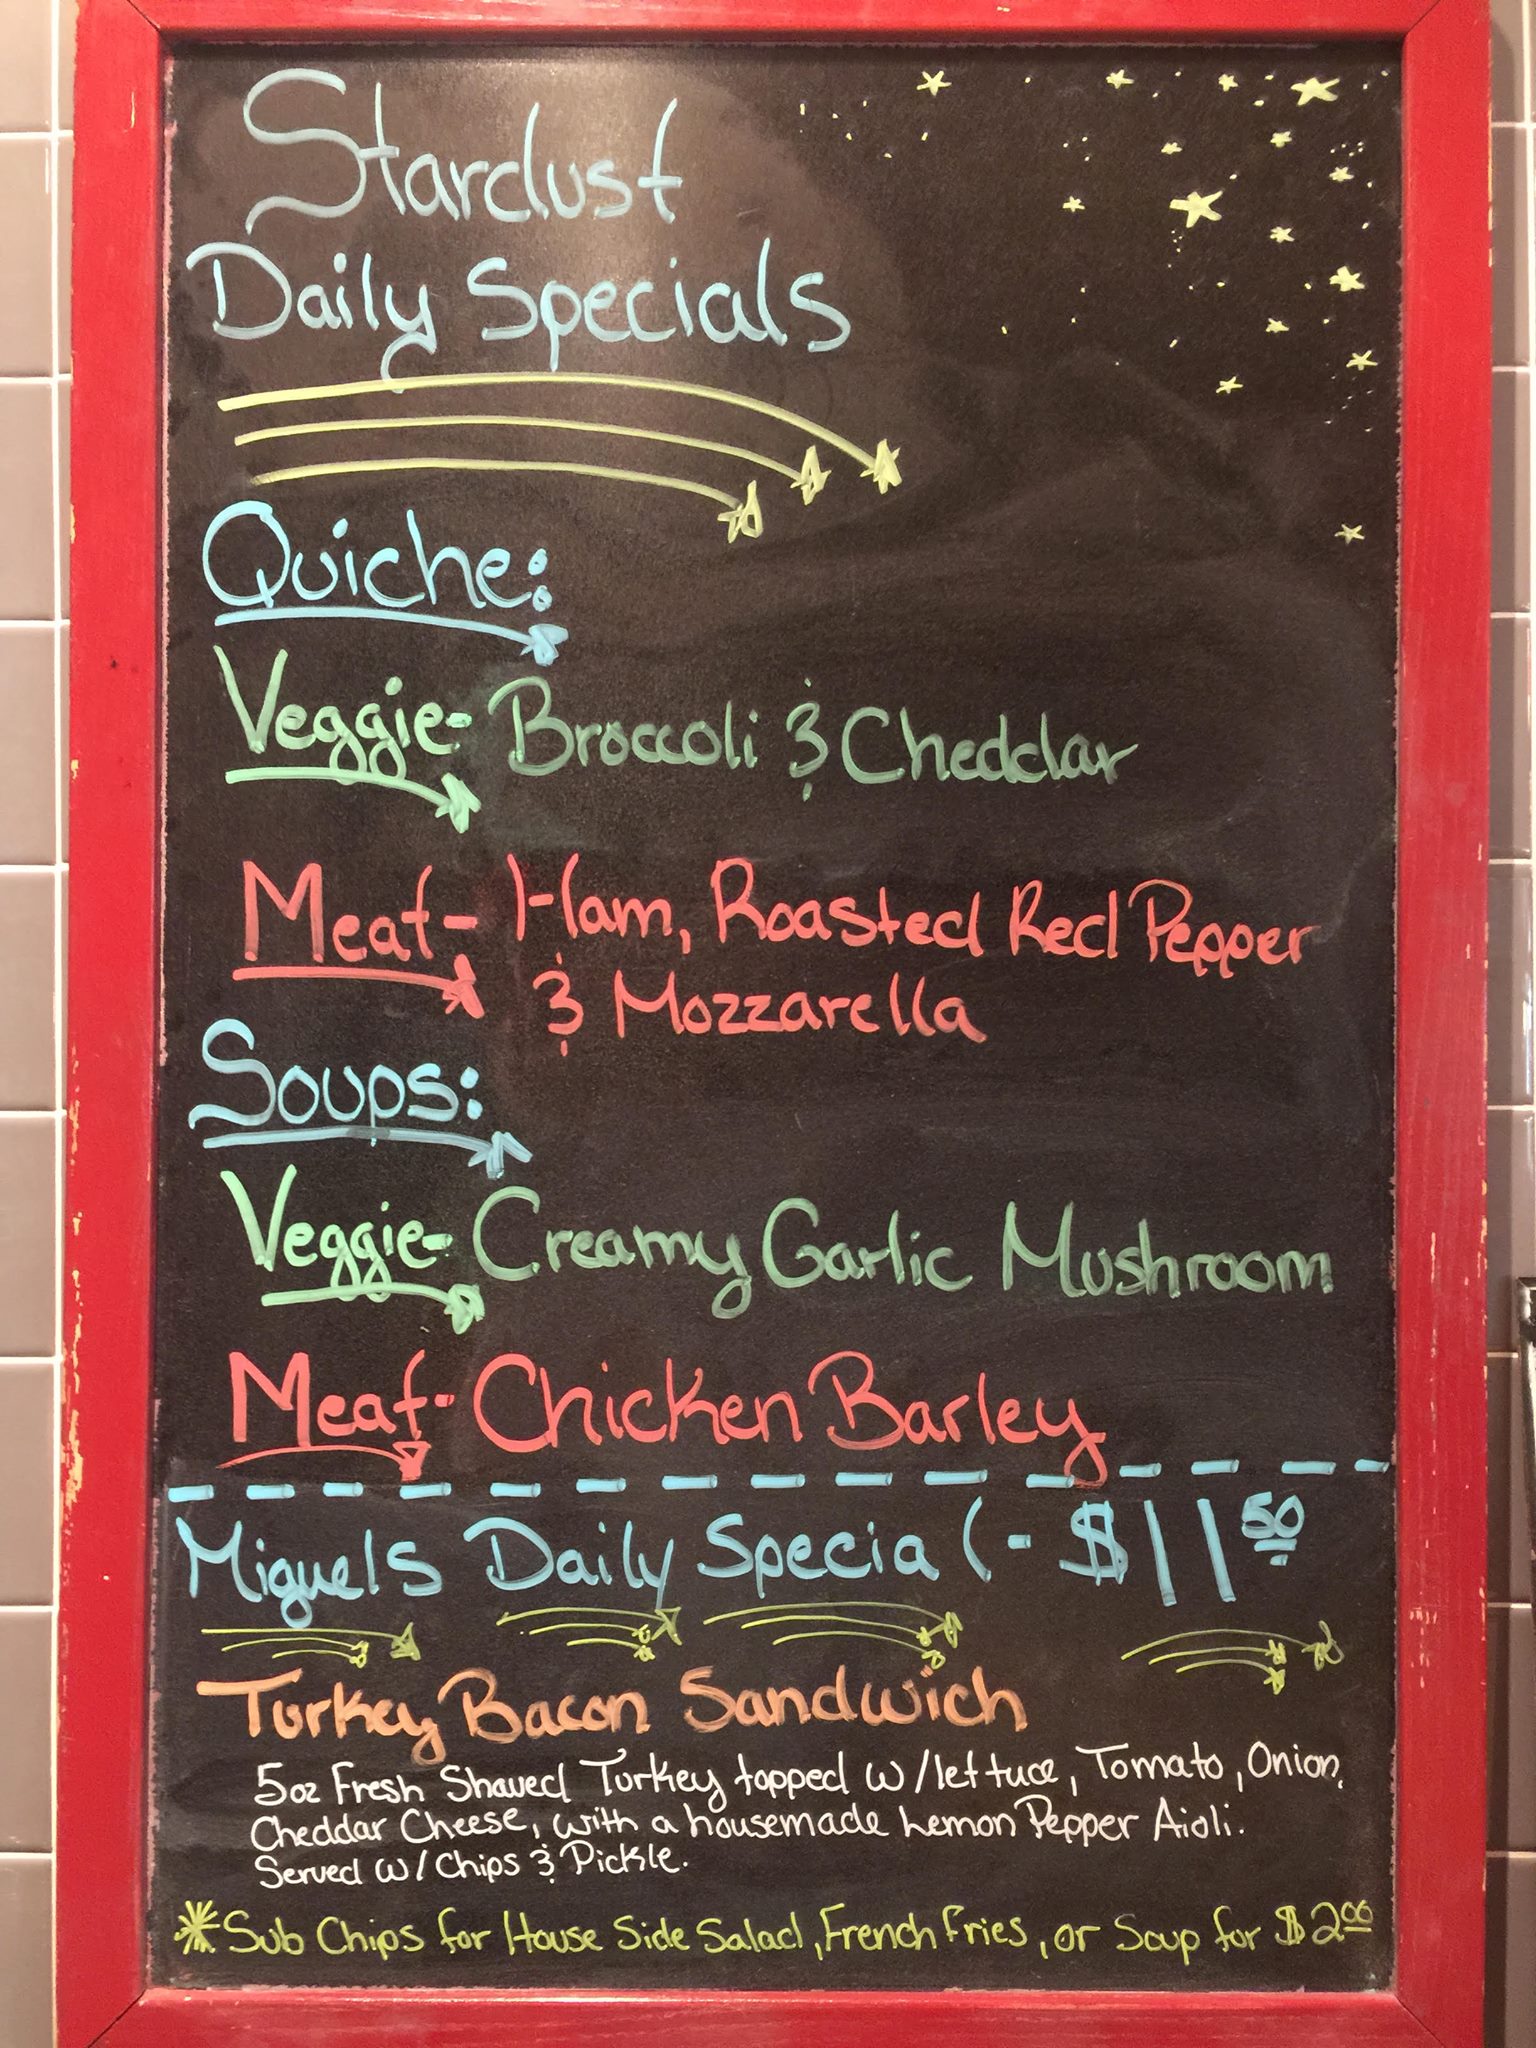 Stardust
Daily Specials
Quiche:
Veggie- Broccoli & Cheddar
Meat- Ham, Roasted Red Pepper
& Mozzarella
Soups:
Veggie- Creamy Garlic Mushroom
Meat- Chicken Barley
Miguels Daily Special - $11.50
Turkey Bacon Sandwich
5oz Fresh Shaved Turkey topped w/lettuce, Tomato, Onion,
Cheddar Cheese, with a housemade Lemon Pepper Aioli.
Served w/ Chips & Pickle.
*Sub Chips for House Side Salad, French Fries, or Soup for $2.00